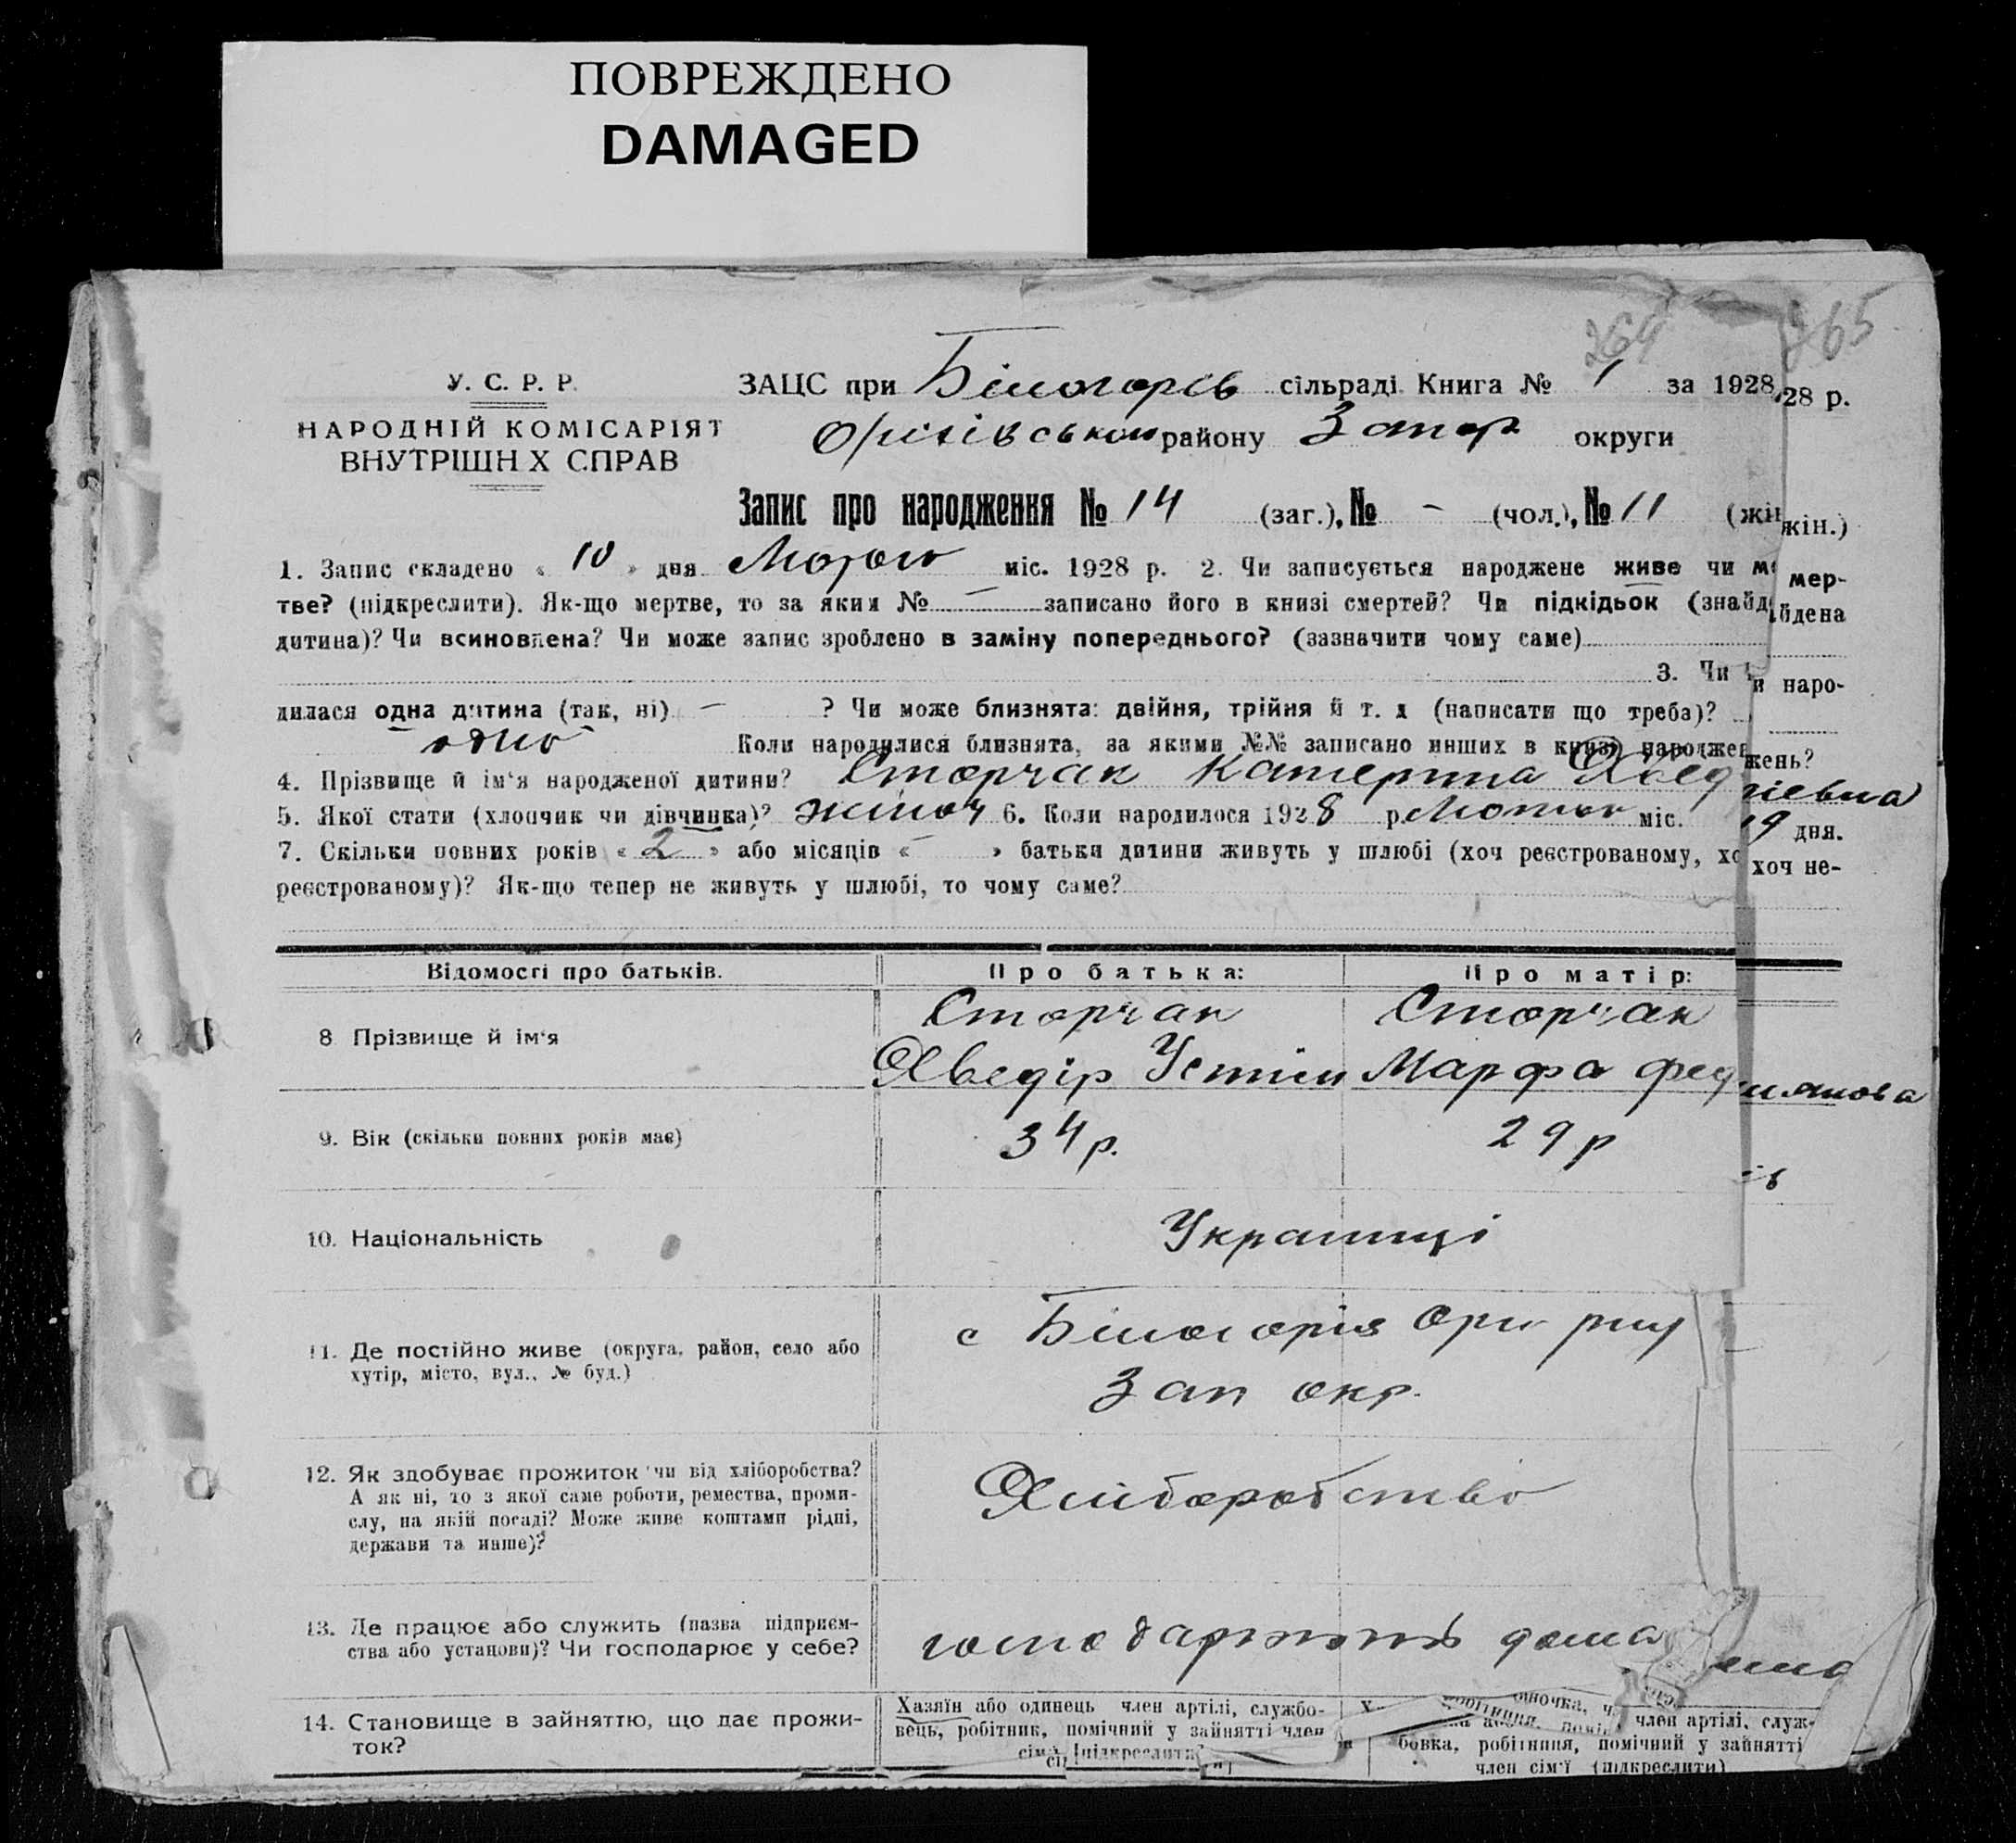 ПОВРЕЖДЕНО
DAMAGED
264 265
У. С. Р. Р.
НАРОДНІЙ КОМІСАРІЯТ
ВНУТРІШН Х СПРАВ
ЗАЦС при Білогорів сільраді Книга № 1 за 1928 28 р.
району Запор округи
Запис про народження № 14 (заг.), № - (чол.), № 11 (жін жін.)
1. Запис складено « 10 » дня міс. 1928 р. 2. Чи записується народжене живе чи мер-
тве? (підкреслити). Як-що мертве, то за яким № — записано його в книзі смертей? Чи підкідьок (знайд йдена
дитина)? Чи всиновлена? Чи може запис зроблено в заміну попереднього? (зазначити чому саме)
3. Чи наро-
дилася одна дитина (так, ні) — ? Чи може близнята: двійня, трійня й т. д (написати що треба)?
одно Коли народилися близнята, за якими №№ записано инших в книзі народжен жень?
4. Прізвище й ім‘я народженої дитини? Сторчак Катерина
5. Якої стати (хлопчик чи дівчинка)? жіноч 6. Коли народилося 1928 р. міс. 9 дня.
7. Скільки повних років « 2 » або місяців « — » батьки дитини живуть у шлюбі (хоч реєстрованому, хоч не-
реєстрованому)? Як-що тепер не живуть у шлюбі, то чому саме?
Відомості про батьків. Про батька: Про матір:
8 Прізвище й ім‘я Сторчак Сторчак
Хведір Устим Марфа Фед
9. Вік (скільки повних років має) 34 р. 29 р
10. Національність Українці
11. Де постійно живе (округа, район, село або
хутір, місто, вул., № буд.)
с Білогорія Орих рну
Зап окр.
12. Як здобуває прожиток чи від хліборобства?
А як ні, то з якої саме роботи, ремества, проми-
слу, на якій посаді? Може живе коштами рідні,
держави та инше)?
Хліборобство
13. Де працює або служить (назва підприєм-
ства або установи)? Чи господарює у себе?
дома
14. Становище в зайняттю, що дає прожи-
ток?
Хазяїн або одинець член артілі, службо-
вець, робітник, помічний у зайнятті член
сім'ї (підкреслити)
член артілі, служ-
бовка, робітниця, помічний у зайнятті
член сім'ї (підкреслити)